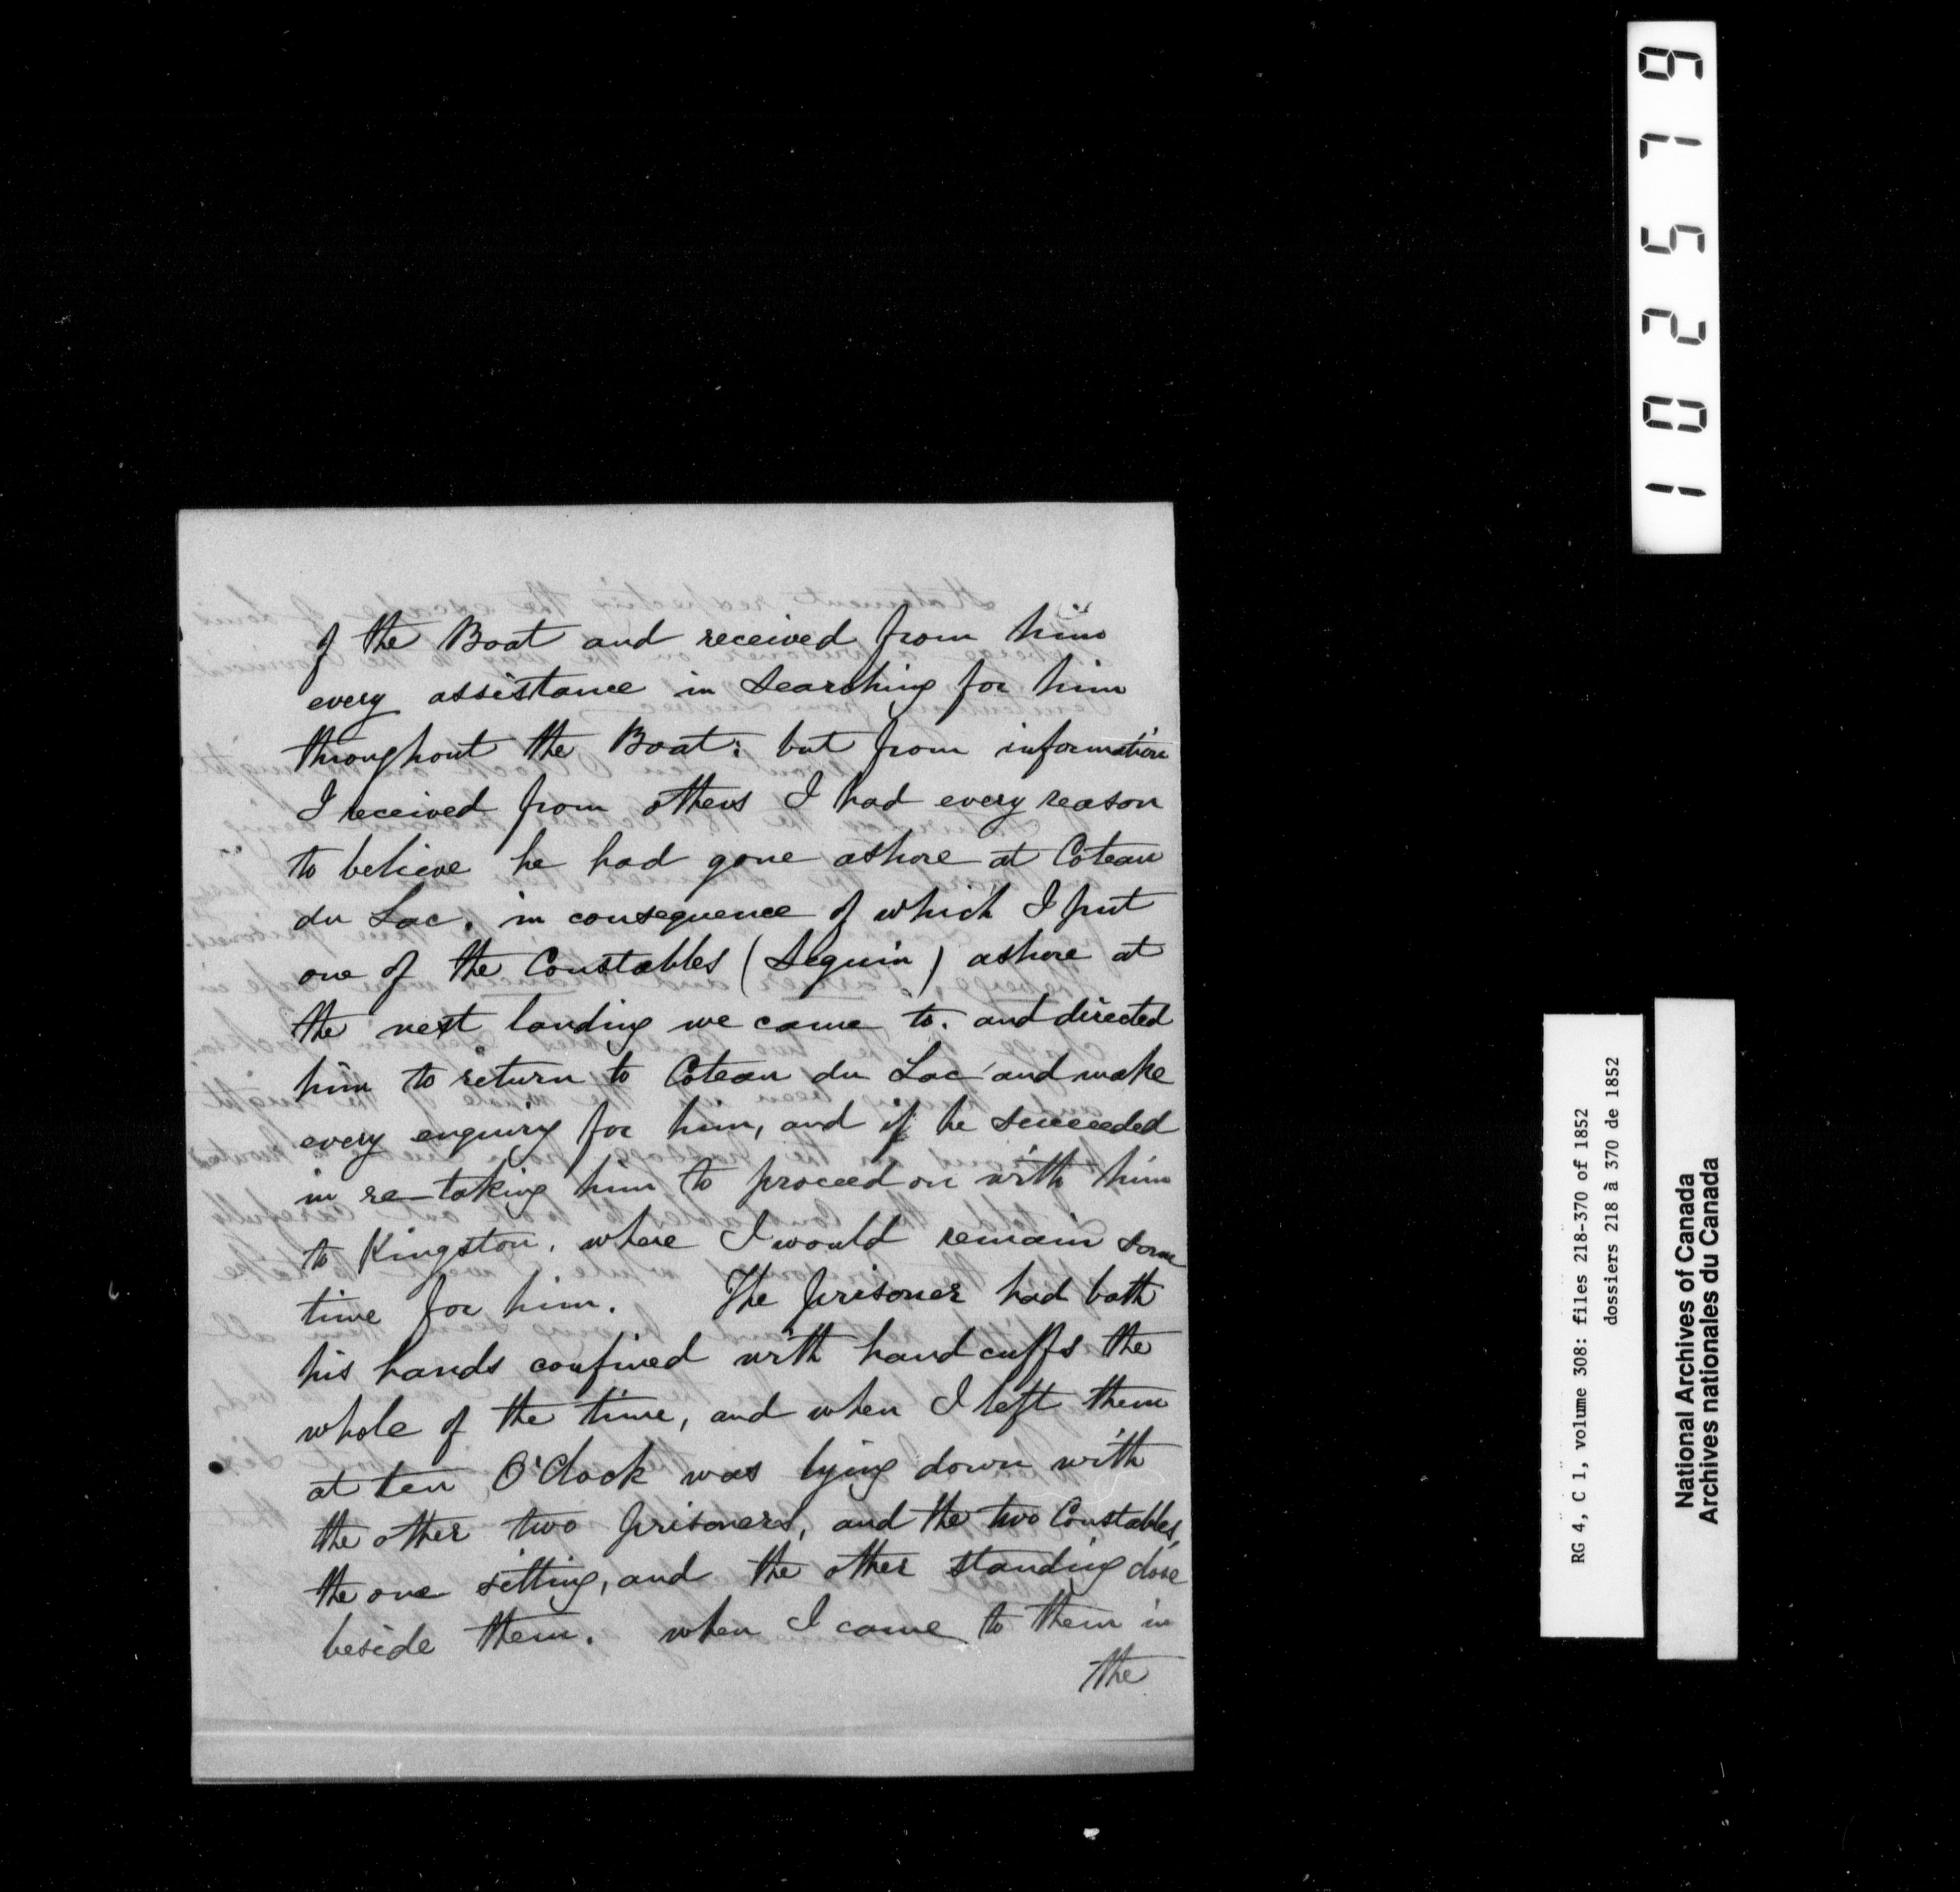 of the Boat and received from him
every assistance in searching for him
throughout the Boat: but from information
I received from others I had every reason
to believe he had gone ashore at Coteau
du Lac. in consequence of which I put
one of the Constables (Seguin) ashore at
the next landing we came to. and directed
him to return to Coteau du Lac and make
every enquiry for him, and if he succeeded
in re-taking him to proceed on with him
to Kingston. where I would remain some
time for him. The prisoner had both
his hands confined with hand cuffs the
whole of the time, and when I left them
at ten O'Clock was lying down with
the other two prisoners, and the two Constables,
the one sitting, and the other standing close
beside them. when I came to them in
the
102579
RG 4, C 1, volume 308: files 218-370 of 1852
dossiers 218 à 370 de 1852
National Archives of Canada
Archives nationales du Canada